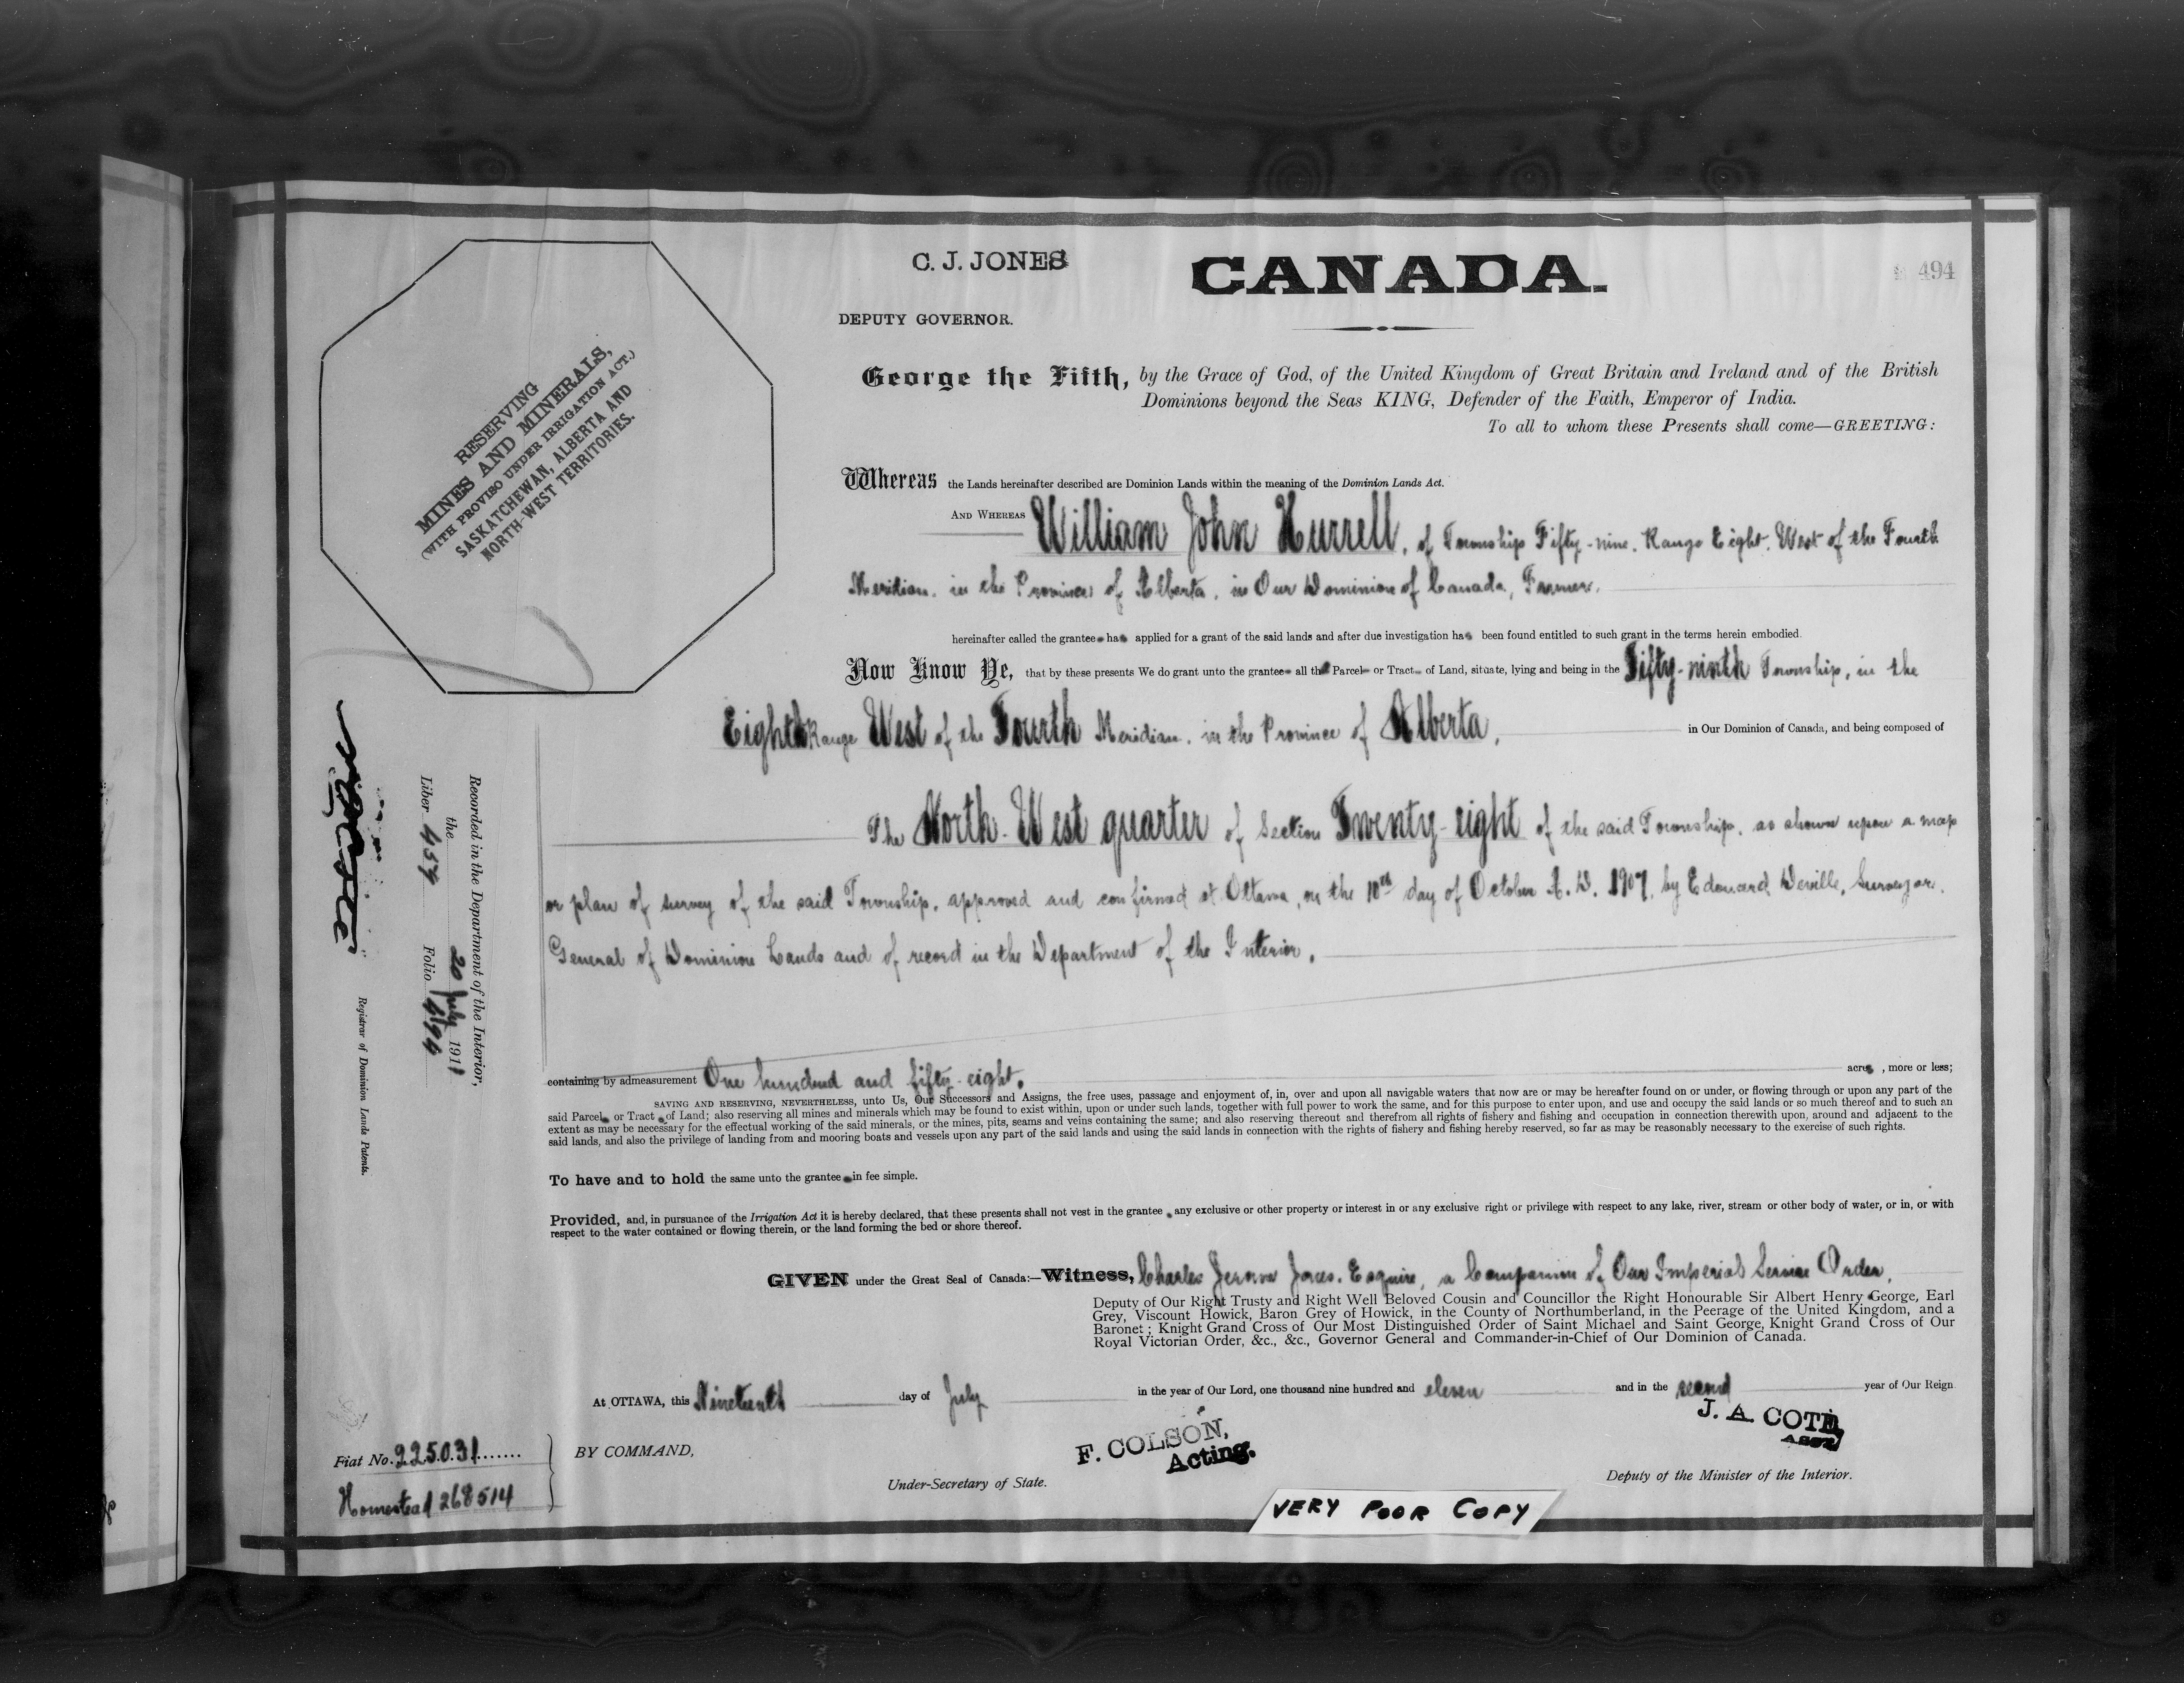 C. J. JONES
CANADA.
494
DEPUTY GOVERNOR.
RESERVING
MINES AND MINERALS,
(WITH PROVISO UNDER IRRIGATION ACT.)
SASKATCHEWAN, ALBERTA AND
NORTH-WEST TERRITORIES.
George the Fifth, by the Grace of God, of the United Kingdom of Great Britain and Ireland and of the British
Dominions beyond the Seas KING, Defender of the Faith, Emperor of India.
To all to whom these Presents shall come—GREETING:
Whereas the Lands hereinafter described are Dominion Lands within the meaning of the Dominion Lands Act.
AND WHEREAS William John Hurrell, of Township Fifty-nine, Range Eight, West of the Fourth
Meridian, in the Province of Alberta, in Our Dominion of Canada, Farmer,
hereinafter called the grantee has applied for a grant of the said lands and after due investigation has been found entitled to such grant in the terms herein embodied.
Now Know Ye, that by these presents We do grant unto the grantee all that Parcel or Tract of Land, situate, lying and being in the Fifty-ninth Township, in the
Eighth Range West of the Fourth Meridian, in the Province of Alberta, in Our Dominion of Canada, and being composed of
The North-West quarter of Section Twenty-eight of the said Township, as shown upon a map
or plan of survey of the said Township, approved and confirmed at Ottawa, on the 10th day of October A.D. 1907, by Edouard Deville, Surveyor
General of Dominion Lands and of record in the Department of the Interior.
containing by admeasurement One hundred and fifty-eight. acres, more or less;
SAVING AND RESERVING, NEVERTHELESS, unto Us, Our Successors and Assigns, the free uses, passage and enjoyment of, in, over and upon all navigable waters that now are or may be hereafter found on or under, or flowing through or upon any part of the
said Parcel or Tract of Land; also reserving all mines and minerals which may be found to exist within, upon or under such lands, together with full power to work the same, and for this purpose to enter upon, and use and occupy the said lands or so much thereof and to such an
extent as may be necessary for the effectual working of the said minerals, or the mines, pits, seams and veins containing the same; and also reserving thereout and therefrom all rights of fishery and fishing and occupation in connection therewith upon, around and adjacent to the
said lands, and also the privilege of landing from and mooring boats and vessels upon any part of the said lands and using the said lands in connection with the rights of fishery and fishing hereby reserved, so far as may be reasonably necessary to the exercise of such rights.
To have and to hold the same unto the grantee in fee simple.
Provided, and, in pursuance of the Irrigation Act it is hereby declared, that these presents shall not vest in the grantee any exclusive or other property or interest in or any exclusive right or privilege with respect to any lake, river, stream or other body of water, or in, or with
respect to the water contained or flowing therein, or the land forming the bed or shore thereof.
GIVEN under the Great Seal of Canada:—Witness, Charles Jerome Jones, Esquire, a Companion of Our Imperial Service Order,
Deputy of Our Right Trusty and Right Well Beloved Cousin and Councillor the Right Honourable Sir Albert Henry George, Earl
Grey, Viscount Howick, Baron Grey of Howick, in the County of Northumberland, in the Peerage of the United Kingdom, and a
Baronet; Knight Grand Cross of Our Most Distinguished Order of Saint Michael and Saint George, Knight Grand Cross of Our
Royal Victorian Order, &c., &c., Governor General and Commander-in-Chief of Our Dominion of Canada.
At OTTAWA, this Nineteenth day of July in the year of Our Lord, one thousand nine hundred and eleven and in the second year of Our Reign
BY COMMAND,
F. COLSON,
Acting.
Under-Secretary of State.
J. A. COTE,
ASST
Deputy of the Minister of the Interior.
Fiat No. 225031
Homestead 268514
Recorded in the Department of the Interior,
the 20 July 1911
Liber 457 Folio 494
Registrar of Dominion Lands Patents.
VERY POOR COPY